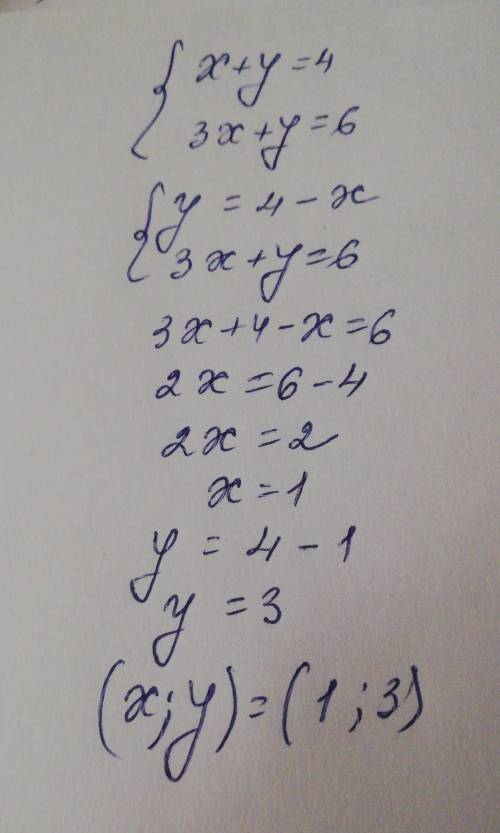 { x+y=4
3x+y=6
{ y = 4-x
3x+y=6
3x+4-x=6
2x=6-4
2x=2
x=1
y = 4-1
y = 3
(x;y)=(1;3)